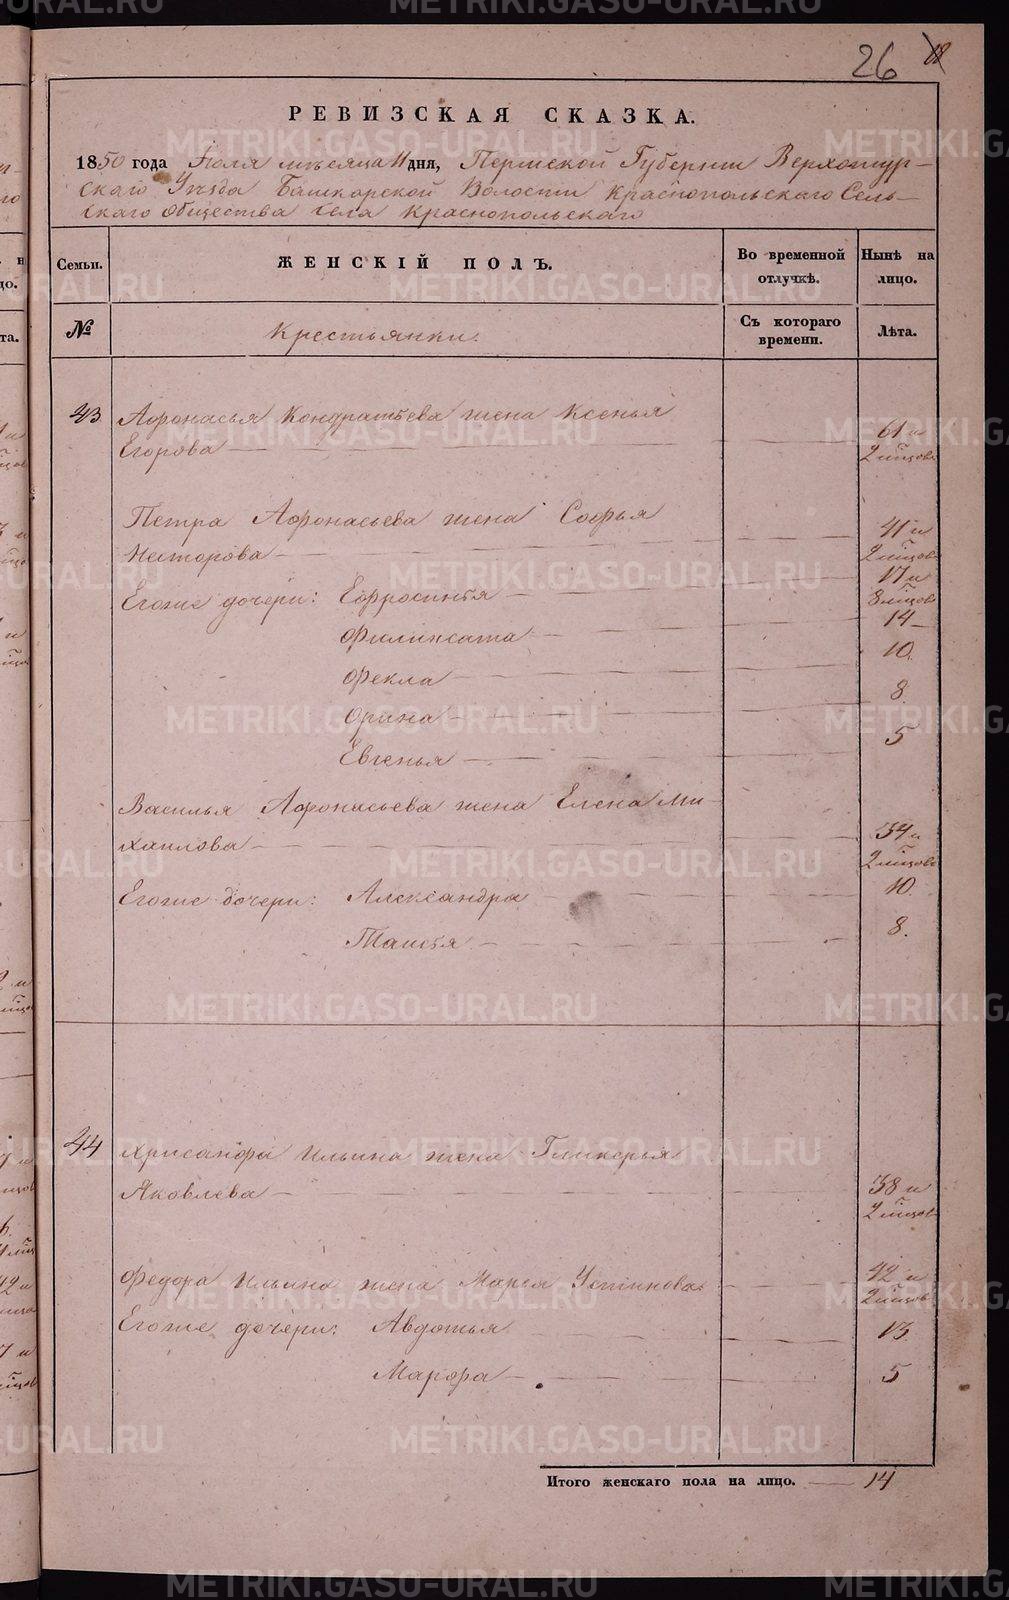 26 18
РЕВИЗСКАЯ СКАЗКА.
1850 года Іюля мѣсяца 11 дня, Пермской Губерніи Верхотур-
скаго Уѣзда Башкарской Волости Краснопольскаго Сель-
скаго Общества села Краснопольскаго
Семьи. ЖЕНСКІЙ ПОЛЪ. Во временной отлучкѣ. Нынѣ на лицо.
№ Крестьянки. Съ котораго времени. Лѣта.
43 Афонасья Кондратьева жена Ксенья
Егорова 61 и
2 мѣсяцов
Петра Афонасьева жена Софья
Несторова 41 и
2 мѣсяцов
Егоже дочери: Ефросинья 17 и
8 мѣсяцов
Филиксата 14
Фекла 10
Орина 8
Евгенья 5
Василья Афонасьева жена Елена Ми-
хаилова 34 и
2 мѣсяцов
Егоже дочери: Александра 10
Таисья 8.
44 Хрисанфа Ильина жена Гликерья
Яковлева 38 и
2 мѣсяцов
Федора Ильина жена Марья Устинова 42 и
2 мѣсяцов
Егоже дочери: Авдотья 13
Марфа 5
Итого женскаго пола на лицо. 14
METRIKI.GASO-URAL.RU